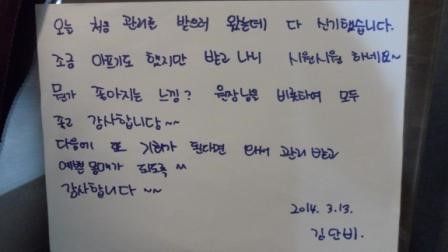 오늘 처음 관리를 받으러 왔는데 다 신기했습니다.
조금 아프기도 했지만 받고 나니 시원시원 하네요~
뭔가 좋아지는 느낌? 원장님을 비롯하여 모두
깊고 감사합니당~~
다음에 또 기회가 된다면 와서 관리 받고
예쁜 몸매가 되도록 ^^
감사합니다 ~~
2014. 3.13.
김단비.